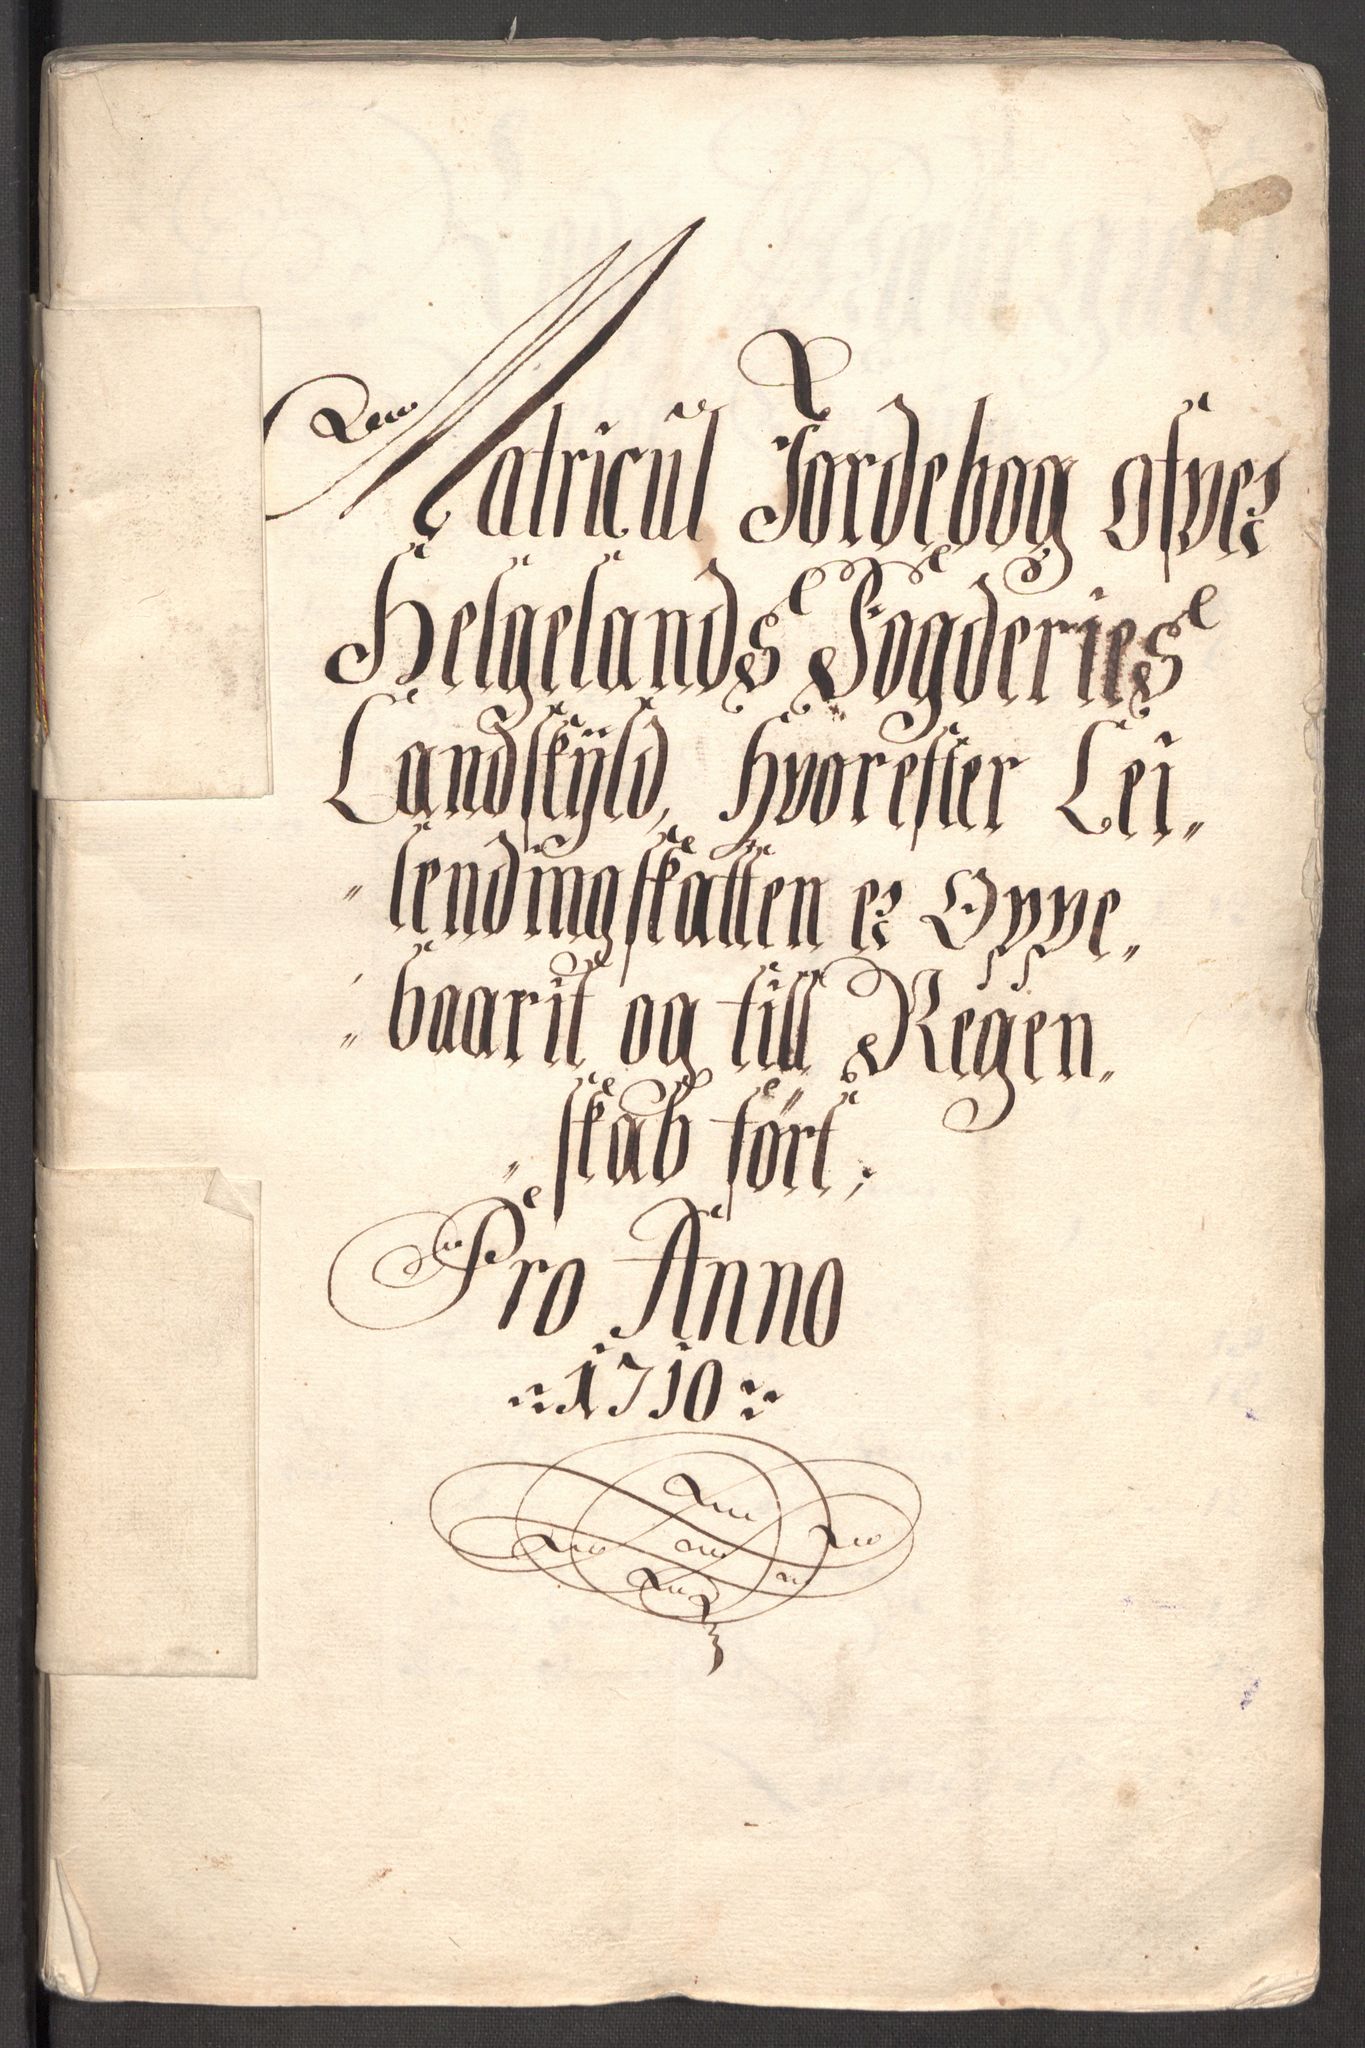 Matricul Jordebog ofver
Helgelands Fogderies
Landskÿld, hvorefter Lei„
„lendingskatten er Oppe„
„baarit og till Regen„
„skab fört;
Pro Anno
1710